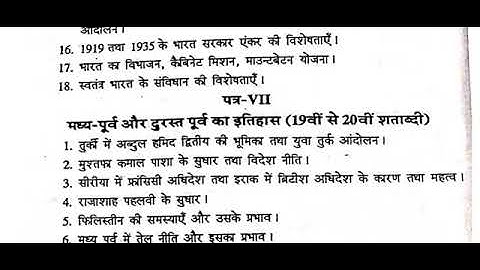 आंदोलन।
16. 1919 तथा 1935 के भारत सरकार एंकर की विशेषताएँ।
17. भारत का विभाजन, कैबिनेट मिशन, माउन्टबेटन योजना।
18. स्वतंत्र भारत के संविधान की विशेषताएँ।
पत्र-VII
मध्य-पूर्व और दुरस्त पूर्व का इतिहास (19वीं से 20वीं शताब्दी)
1. तुर्की में अब्दुल हमिद द्वितीय की भूमिका तथा युवा तुर्क आंदोलन।
2. मुश्तफा कमाल पाशा के सुधार तथा विदेश नीति।
3. सीरीया में फ्रांसिसी अधिदेश तथा इराक में ब्रिटीश अधिदेश के कारण तथा महत्व।
4. राजाशाह पहलवी के सुधार।
5. फिलिस्तीन की समस्याएँ और उसके प्रभाव।
6. मध्य पूर्व में तेल नीति और इसका प्रभाव।